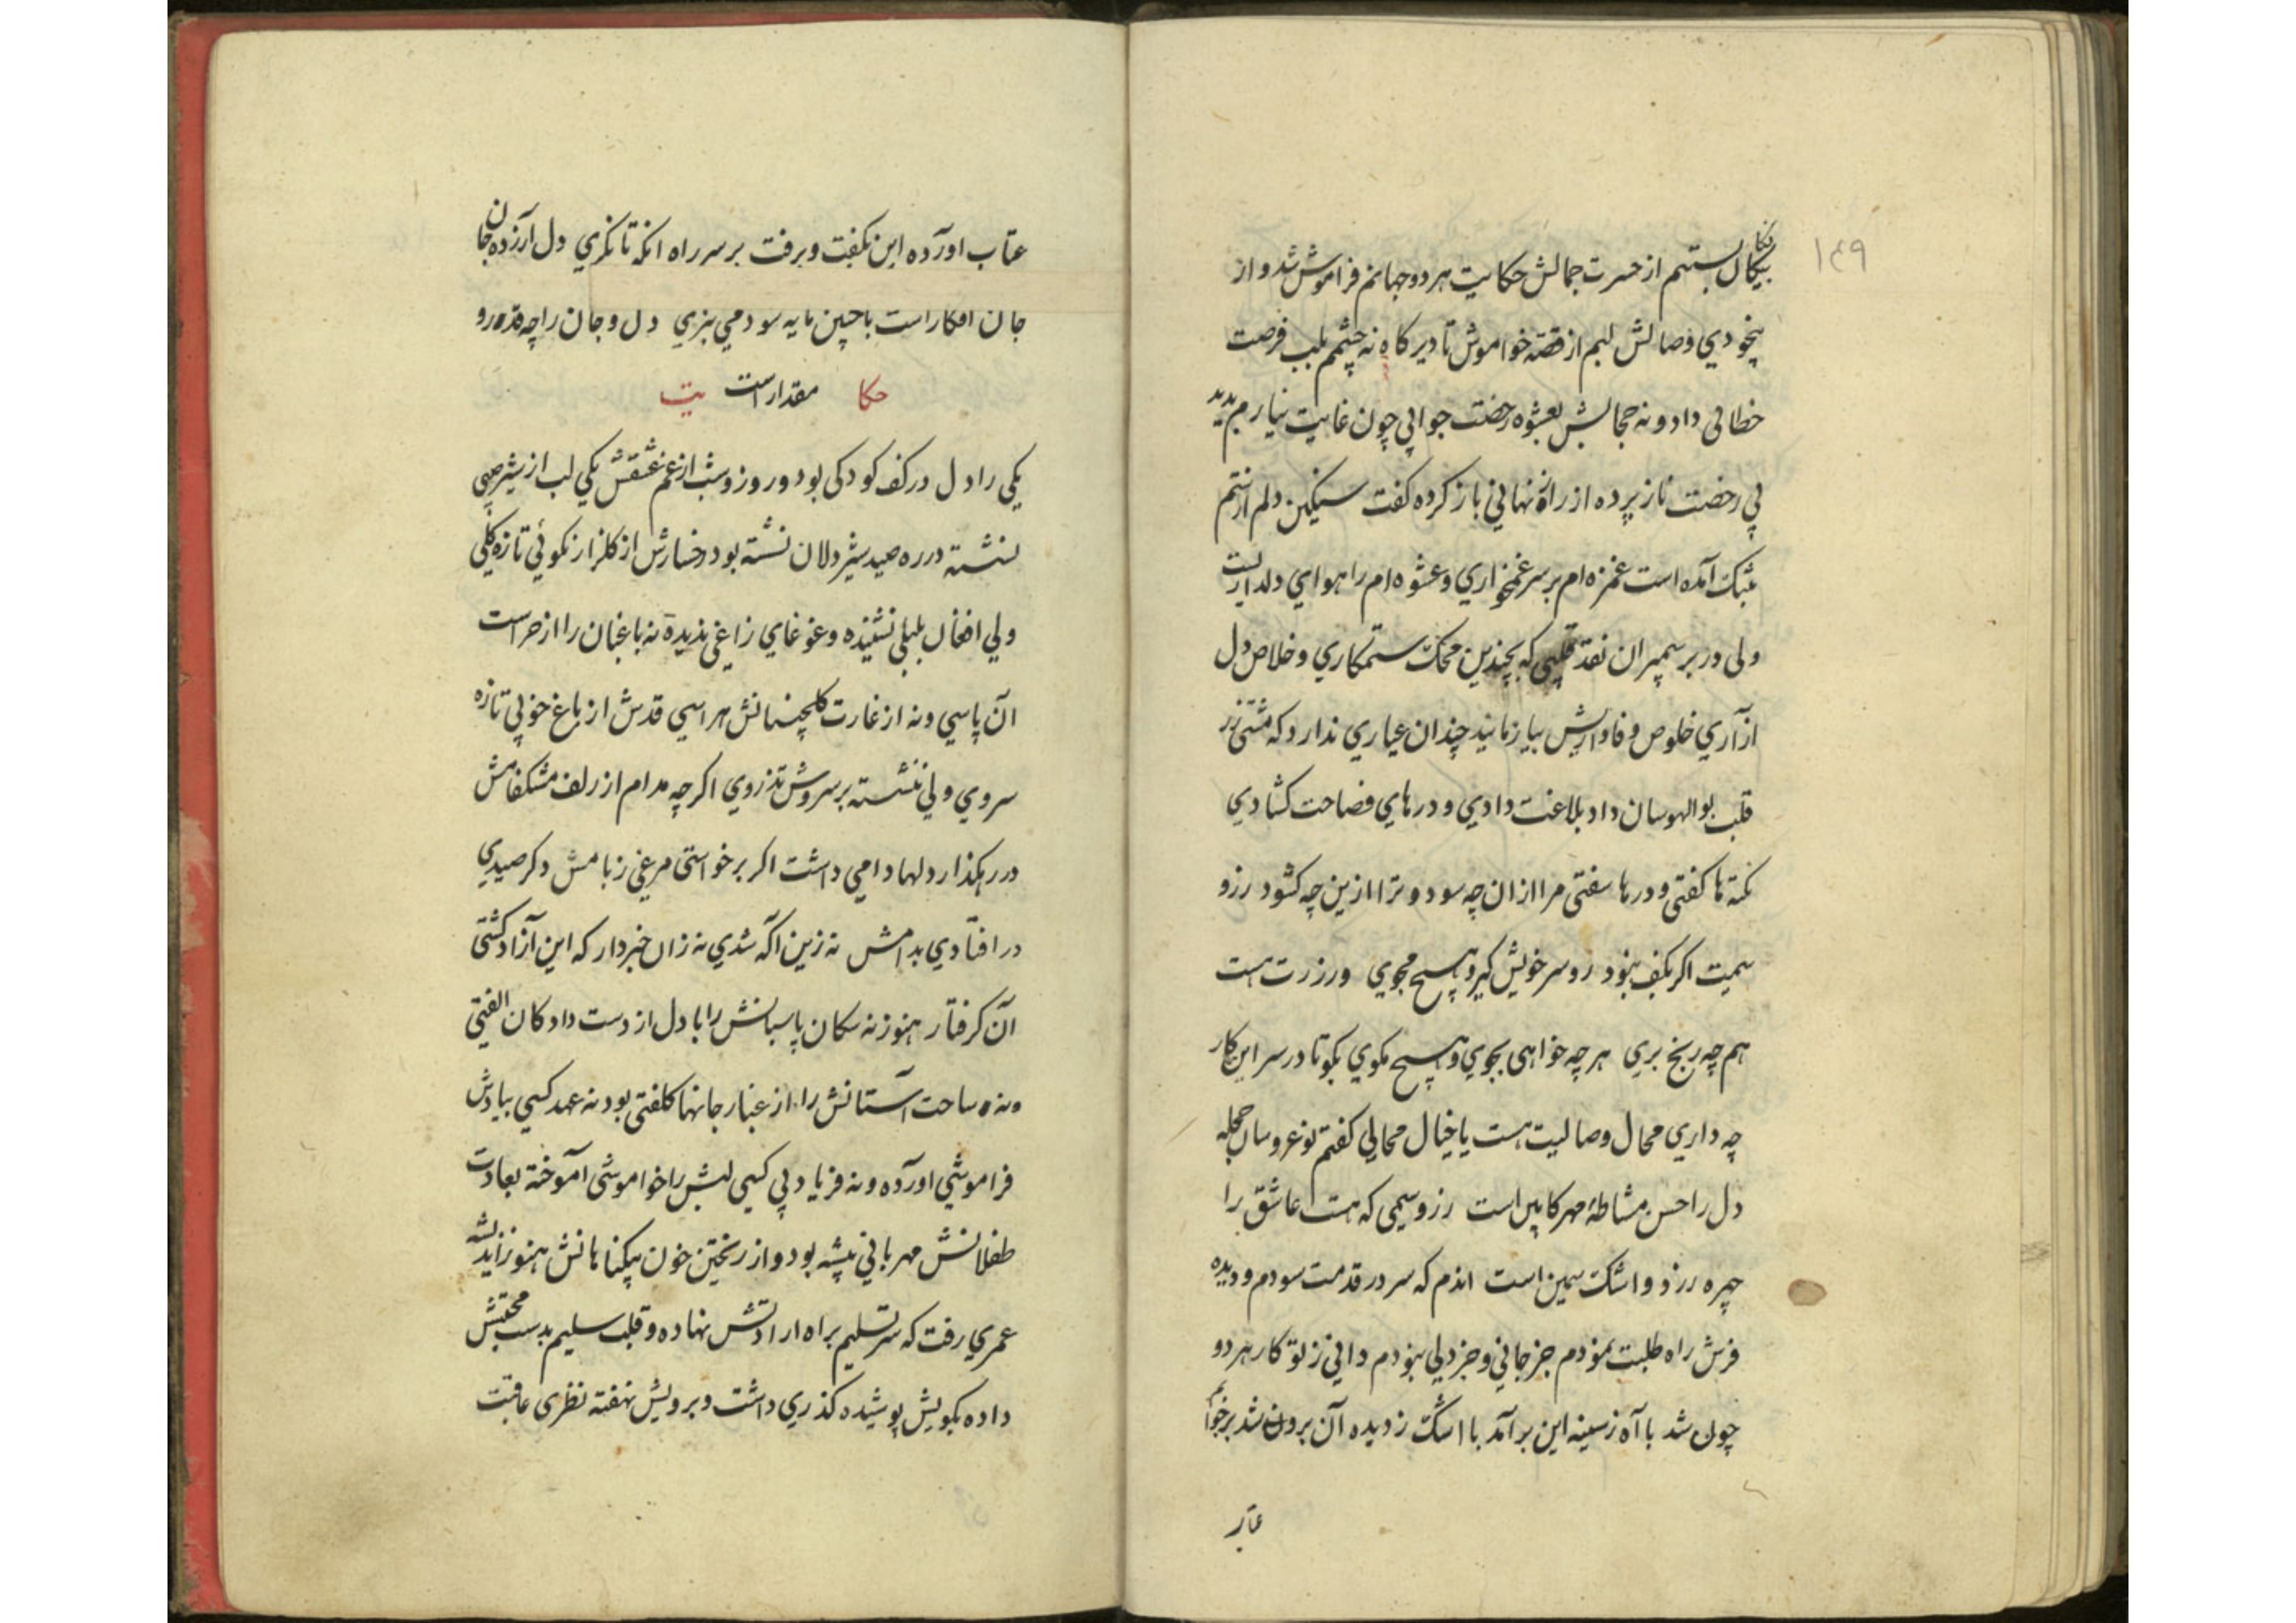 ۱۴۹
بیکان بستم از حسرت جمالش حکایت هر دو جهانم فراموش شد و از
بیخودي وصالش لبم از قصه خواموش تا دیر کاه نه چشمم بلب فرصت
خطابی داد و نه حجابش بعشوه رخصت جوابی چون غایت نیازم بدید
پي رخصت ناز پرده از راز نهاني باز کرده کفت سنکین دلم از ستم
بتنک آمده است غمزه ام بر سر غمخواري و عشوه ام را هواي دلداریست
ولی در بر سیمبران نقد قلبی که بچندین محک ستمکاري و خلاص دل
از آري خلوص وفاداریش بیازمانید چندان عیاري ندارد که مشتی زر
قلب بوالهوسان داد بلاغت دادي و درهاي فصاحت کشادي
نکته ها کفتی و درها سفتی مرا ازان چه سود و ترا ازین چه کشود رزو
سمیت اکر بکف نبود رو سر خویش کیر و هیچ مجوي ورزرت هست
هم چه رنج بري هر چه خواهی بجوي و هیچ مکوي بکو تا در سر این کار
چه داري محال وصالیت هست یا خیال محالي کفتم نو عروسان حجله
دل را حسن مشاطهٔ مهر کابین است رزو سیمی که هست عاشق را
چهره زرد و اشک سیمین است اندم که سر در قدمت سودم و دیده
فرش راه طلبت نمودم جز جاني و جز دلي نبودم داني ز تو کار هر دو
چون شد با آه ز سینه این بر آمد با اشک ز دیده آن برون شد برخوا
عتاب
عتاب اورده این بکفت و برفت بر سر راه انکه تا نکري دل ارزده جان
جان افکار است با چنین مایه سود مي بزي دل و جان را چه قدر و
حکا مقدار است یت
یکي را دل در کف کودکی بود و روز و شب از غم عشقش یکي لب از شیر صبی
نشسته در ره صید شیر دلان نشسته بود رخسارش از کلزار نکوئي تازه کلي
ولي افغان بلبلي نشنیده و غوغاي زاغي ندیده نه باغبان را از حراست
آن پاسي و نه از غارت کلچینانش هراسي قدش از باغ خوبي تازه
سروي ولي ننشسته بر سروش تذروي اکر چه مدام از زلف مشکفامش
در رهکذار دلها دامي داشت اکر بر خواستی مرغي ز بامش و کر صیدي
در افتادي بدامش نه زین اکه شدي نه زان خبردار که این آزاد کشتی
آن کرفتار هنوز نه سکان پاسبانش را با دل از دست دادکان الفتی
و نه ساحت آستانش را از غبار جانها کلفتی بود نه عهد کسي بیادش
فراموشي اورده و نه فریاد پي کسي لبش را خواموشی آموخته بعادت
طفلانش مهرباني پیشه بود و از ریختن خون بیکناهانش هنوز اندیشه
عمري رفت که سر تسلیم براه ارادتش نهاده و قلب سلیم بدست محبتش
داده بکویش پوشیده کذري داشت و برویش نهفته نظری عاقبت